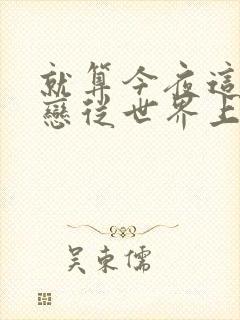 就算今夜這
戀從世界上
吴東儒